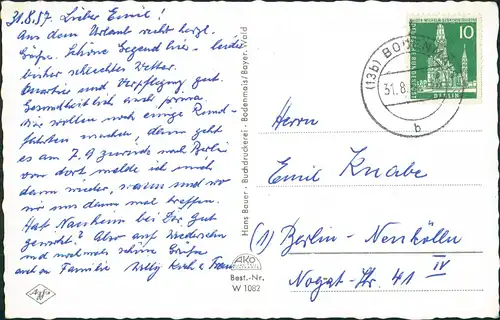 31.8.57. Lieber Emil!
Aus dem Urlaub recht herzl.
Grüße. Schöne Gegend hier - leider
bisher schlechtes Wetter.
Quartier und Verpflegung gut.
Gesundheitlich auch prima
Wir wollen noch einige Rund-
fahrten machen, dann geht
es am 7.9 zurück nach Berlin
von dort melde ich mich
dann wieder, wann und wo
wir uns dann mal treffen.
Hat Nauheim bei Dir gut
gewirkt? Also auf Wiedersehen
und nochmals schöne Grüße
auch an Familie Willy u. Frau
Hans Bauer · Buchdruckerei · Bodenmais/Bayer. Wald
AKO
Best.-Nr.
W 1082
Agfa
(13b) BODENM
31.8.
b
10
BERLIN
Herrn
Emil Knabe
(1) Berlin - Neukölln
Nogat-Str. 41 IV